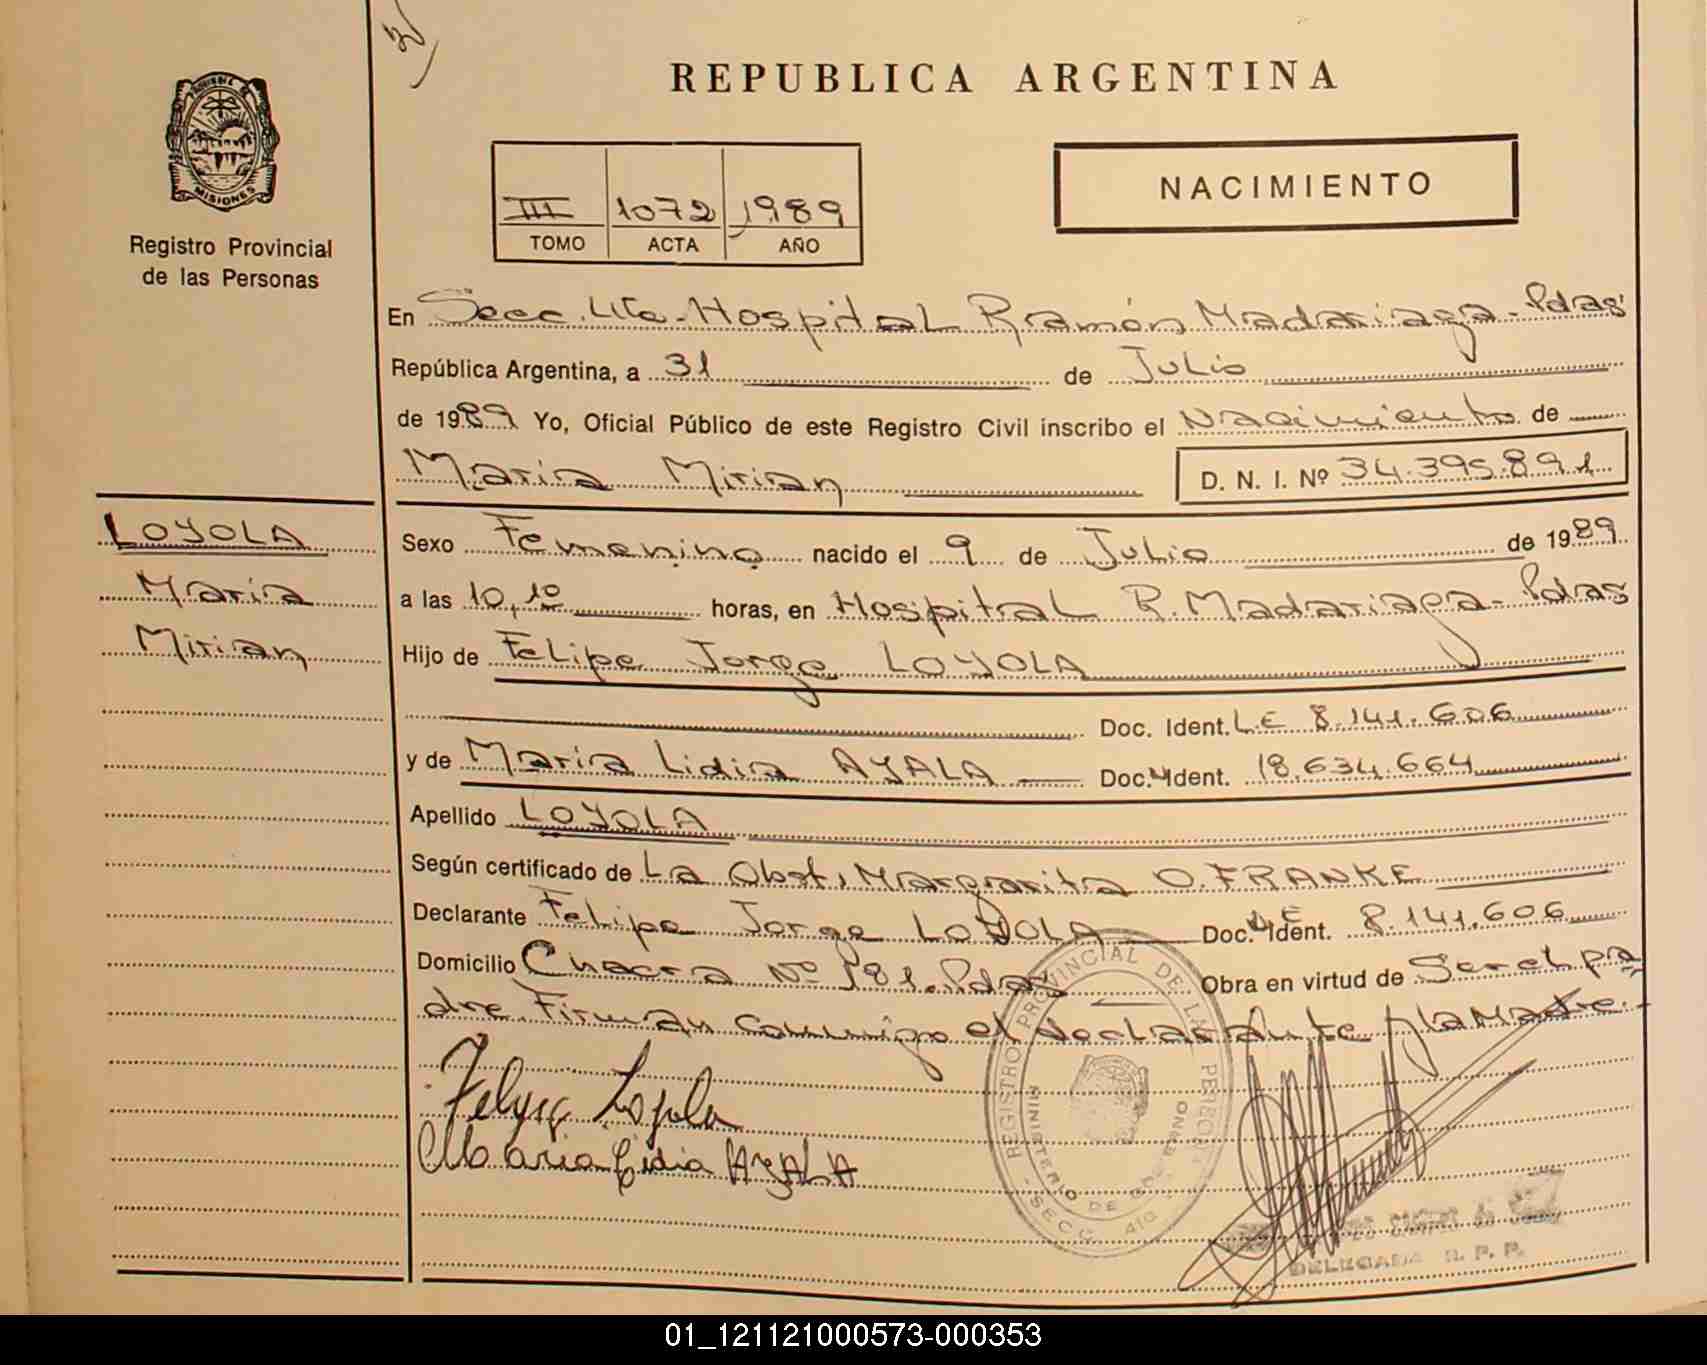 REPUBLICA ARGENTINA
MISIONES
Registro Provincial
de las Personas
NACIMIENTO
III 1072 1989
TOMO ACTA AÑO
En Secc. 4ta. Hospital Ramón Madariaga - Pdas
República Argentina, a 31 de Julio
de 1989 Yo, Oficial Público de este Registro Civil inscribo el Nacimiento de
María Mirian D. N. I. Nº 34.395.891
LOYOLA
María
Mirian
Sexo Femenino nacido el 9 de Julio de 1989
a las 10,10 horas, en Hospital R. Madariaga - Pdas
Hijo de Felipe Jorge LOYOLA
Doc. Ident. L.E 8.141.606
y de María Lidia AYALA Doc. Ident. 18.634.664
Apellido LOYOLA
Según certificado de La Obst. Margarita O. FRANKE
Declarante Felipe Jorge LOYOLA Doc. Ident. LE 8.141.606
Domicilio Chacra Nº 181. Pdas Obra en virtud de Ser el pa
dre. Firman conmigo el declarante y la Madre.-
Felipe Loyola
Maria Lidia AYALA
REGISTRO PROVINCIAL DE LAS PERSONAS
MINISTERIO DE GOBIERNO
SECC. 4ta
DELEGADA R. P. P.
01_121121000573-000353